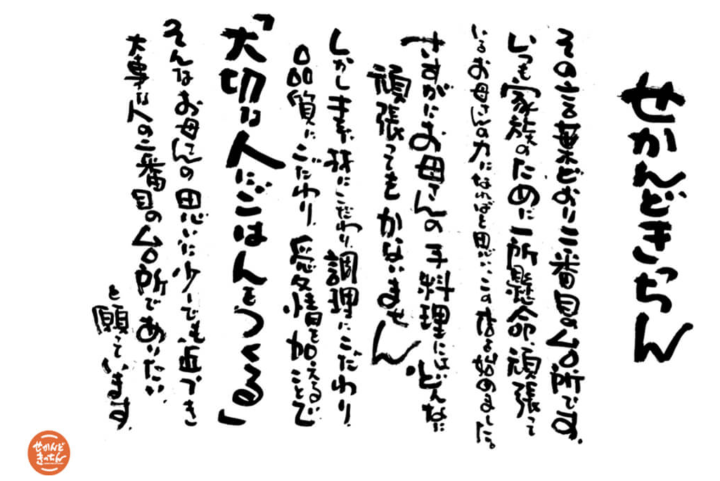 せかんどきっちん
その言葉どおり二番目の台所です。
いつも家族のために一所懸命頑張って
いるお母さんの力になればと思い、この店を始めました。
さすがにお母さんの手料理にはどんなに
頑張ってもかないません。
しかし素材にこだわり、調理にこだわり、
品質にこだわり、愛情を加えることで
「大切な人にごはんをつくる」
そんなお母さんの思いに少しでも近づき
大事な人の二番目の台所でありたい
と願っています。
せかんど
きっちん